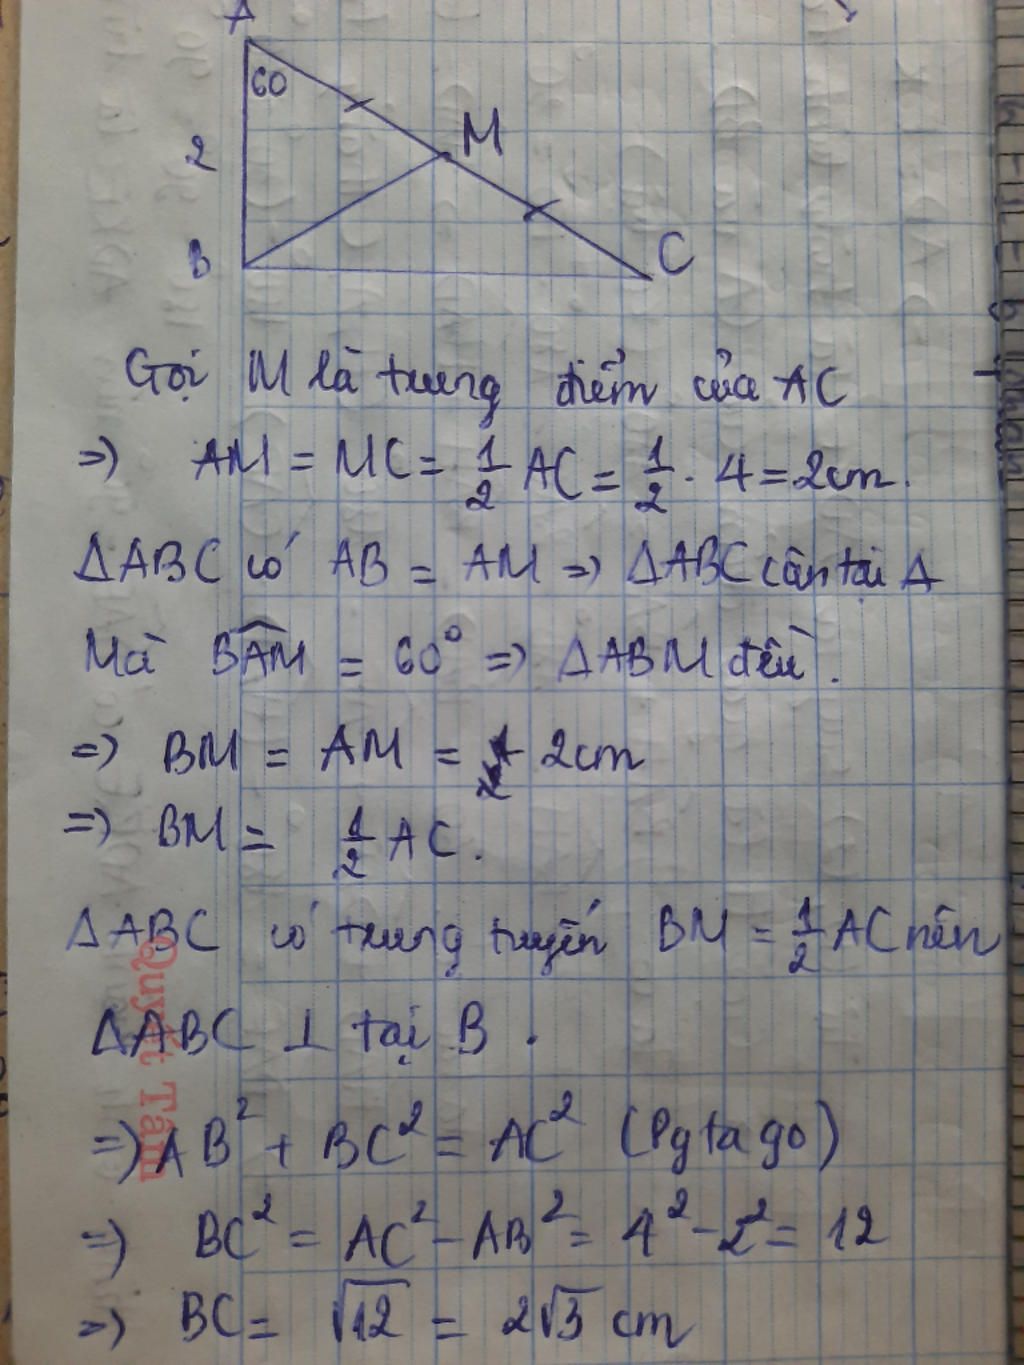 A
60
M
2
B
C
Gọi M là trung điểm của AC
=) AM = MC = 1/2 AC = 1/2 . 4 = 2cm.
ΔABC có AB = AM => ΔABC cân tại A
Mà BAM = 60° => ΔABM đều.
=) BM = AM = 2cm
=) BM = 1/2 AC.
ΔABC có trung tuyến BM = 1/2 AC nên
ΔABC ⊥ tại B.
=) AB² + BC² = AC² (Pytago)
=) BC² = AC² - AB² = 4² - 2² = 12
=) BC = √12 = 2√3 cm
Quyết Tâm